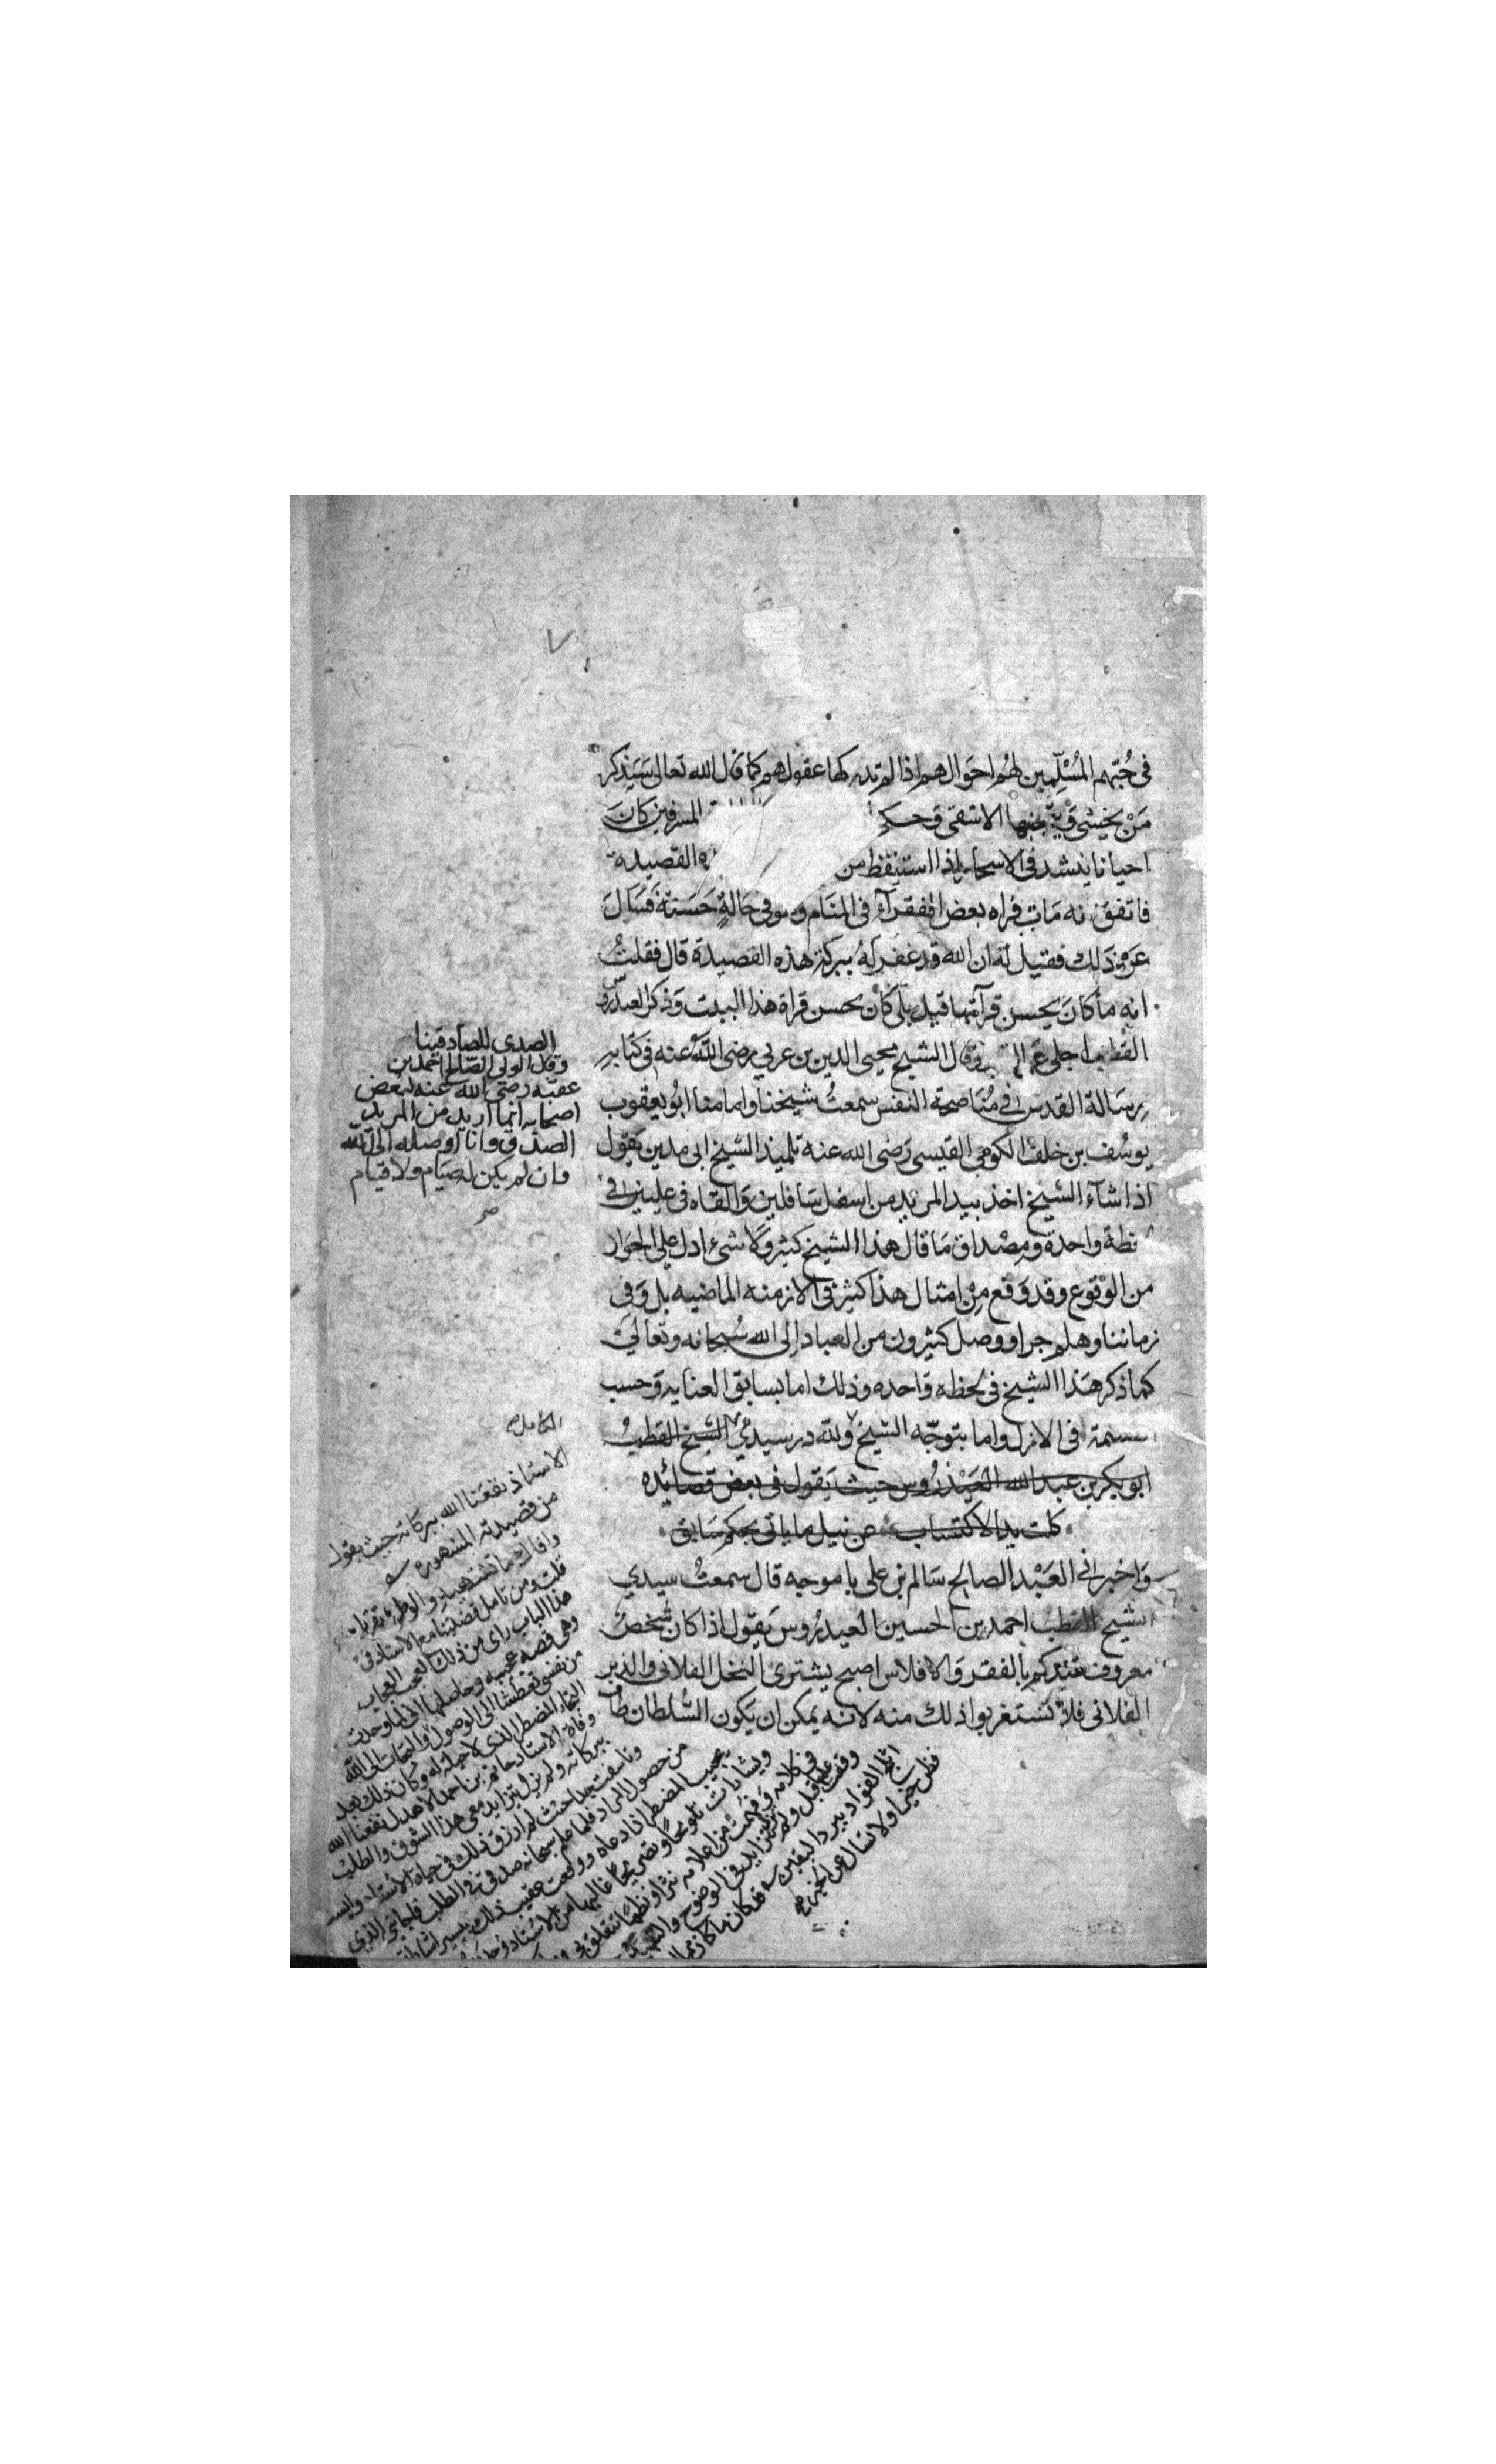 في حُبّهم المُسْلِّمِين لهُم احوَالهم اذا لم تدركها عقولهم كما قال الله تعالى سَيَذكر
مَنْ يخشى وَيتجنبها الاشقى وحكي المسرفين كانَ
احيانا ينشد في الاسحار اذا استيقظ من القصيدة
فاتفق انه مَات فراه بعض الفقرآء في المنَام وهو في حَالةٍ حَسَنَة فسَالَ
عن ذَلك فقيل له ان الله قد غفر لهُ ببركة هذه القصيدة قال فقلتُ
انه ما كانَ يحسن قرآءتها قيل بلى كان يحسن قراة هذا البيت وَذكر العيدروس
القطب وقال الشيخ محيى الدين بن عربي رضى الله عنه في كتابهِ
رِسَالة القدس في مُنَاصحة النفس سمعتُ شيخنا وامامنا ابُو يعقوب
يوسُف بن خلف الكومي القيسى رَضى الله عنه تلميذ الشيخ ابى مدين يَقول
اذا شآءَ الشيخ اخذ بيد المريد من اسفل سَافلين وَالقاه في عليين في
لحظة واحدة ومِصْداق مَا قال هذا الشيخ كثير وَلا شىء ادل على الجوَاز
من الوقوع وقد وَقع مِنْ امثال هذا كثير في الازمنه الماضيه بل وَفي
زماننا وهلم جرا ووصل كثيرون من العباد اِلى الله سُبحانه وتعالىَ
كما ذكر هَذا الشيخ في لحظه وَاحده وذلك اما بسابق العنايه وَحسب
القسمة في الازل واما بتوجّه الشيخ ولله در سيدي الشيخ القطبُ
ابو بكر بن عبد الله العَيْدَرُوس حيث يَقول في بعض قصائده
كلت يد الاكتساب عن نيل ما ياتى بحكم سَابق
وَاخبرني العَبْد الصالح سَالم بن على باموجه قال سمعتُ سيدي
الشيخ القطب احمد بن الحسين العيدرُوس يَقول اذا كان شخصُ
معروف عندكم بالفقر وَالافلاس اصبح يشترى النخل الفلانى والذبر
الفلانى فلا تَستغربوا ذلك منه لانه يمكن ان يكون السُّلطان
الصدى للصادقينا
وقال الولى الصالح احمد بن
عقبه رضى الله عنه لبعض
اصحابه انما اريد من المريد
الصدق وانا اوصله الى الله
وان لم يكن له صيَام ولا قيام
صح
الاستاذ نفعنا الله ببركاته حيث يقول
من قصيدته المشهورة
قلت ومن تامل قضيتنا مع الاستاذ في
هذا الباب راى من ذلك العجب العجاب
وهى قصه عجيبه وحاصلها انى لما وجدت
من نفسى تعطشا الى الوصول والتجات الى الله
التجاء المضطر الذى لا حيلة له وكان ذلك بعد
وفاة الاستاذ حاتم بن احمد الاهدل نفعنا الله
ببركاته ولم يزل يتزايد معى هذا الشوق والطلب
وتاسفت جدا حيث لم ارزق ذلك في حياة الاستاذ
من حصول المراد فلما علم سبحانه صدقى في الطلب
يجيب المضطر اذا دعاه ووقعت عقيب ذلك
وبشارات تلويحا وتصريحًا غالبها من الاستاذ
في كلامه وفهمت من اعلامه نثرا ونظمًا
وقفت عليه قبل ولم يزل يتزايد في الوضوح
اثلج الفؤاد ببرد اليقين فكان ما كان
فظن خيرا ولا تسال عن الخبر صح